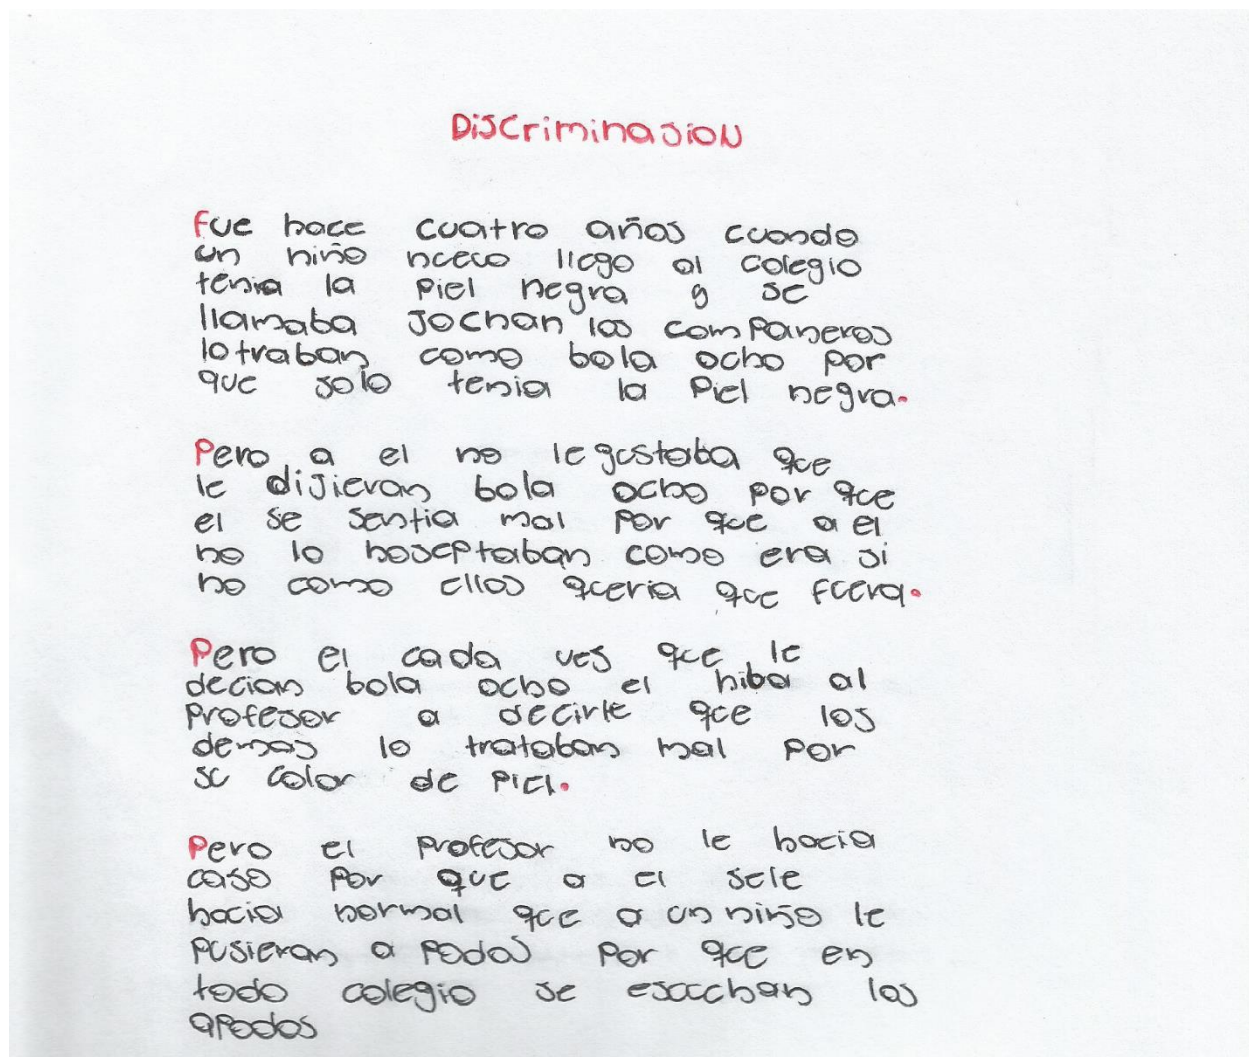 Discriminasion
Fue hace cuatro años cuando
un niño nuevo llego al colegio
tenia la piel negra y se
llamaba Jochan los compañeros
lotraban como bola ocho por
que solo tenia la piel negra.
Pero a el no le gustaba que
le dijieran bola ocho por que
el se sentia mal por que a el
no lo hoseptaban como era si
no como ellos queria que fuera.
Pero el cada ves que le
decian bola ocho el hiba al
profesor a decirle que los
demas lo trataban mal por
su color de piel.
Pero el profesor no le hacia
caso por que a el sele
hacia normal que a un niño le
pusieran a podos por que en
todo colegio se escuchan los
apodos